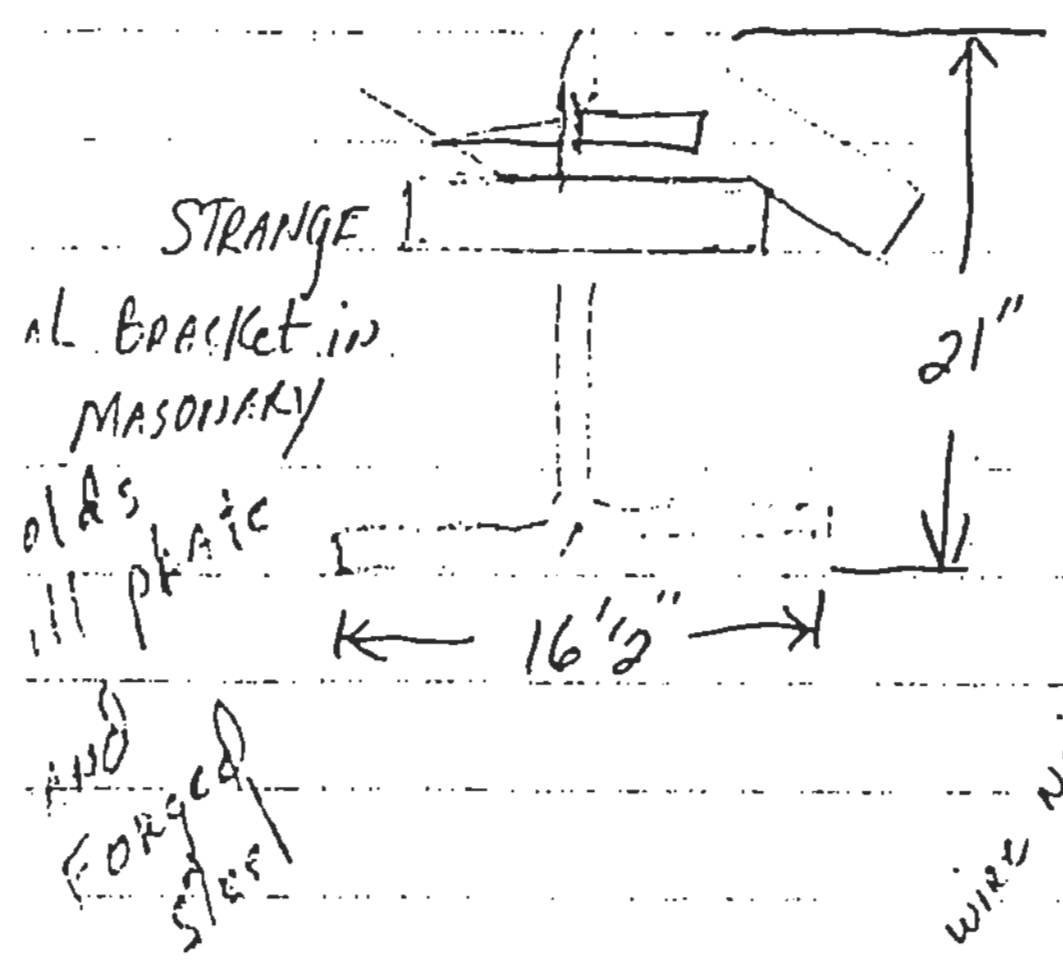 STRANGE
AL BRACKET in
MASONARY
olds
ill plate
AND
FORGED
21"
16 1/2"
WIRE N